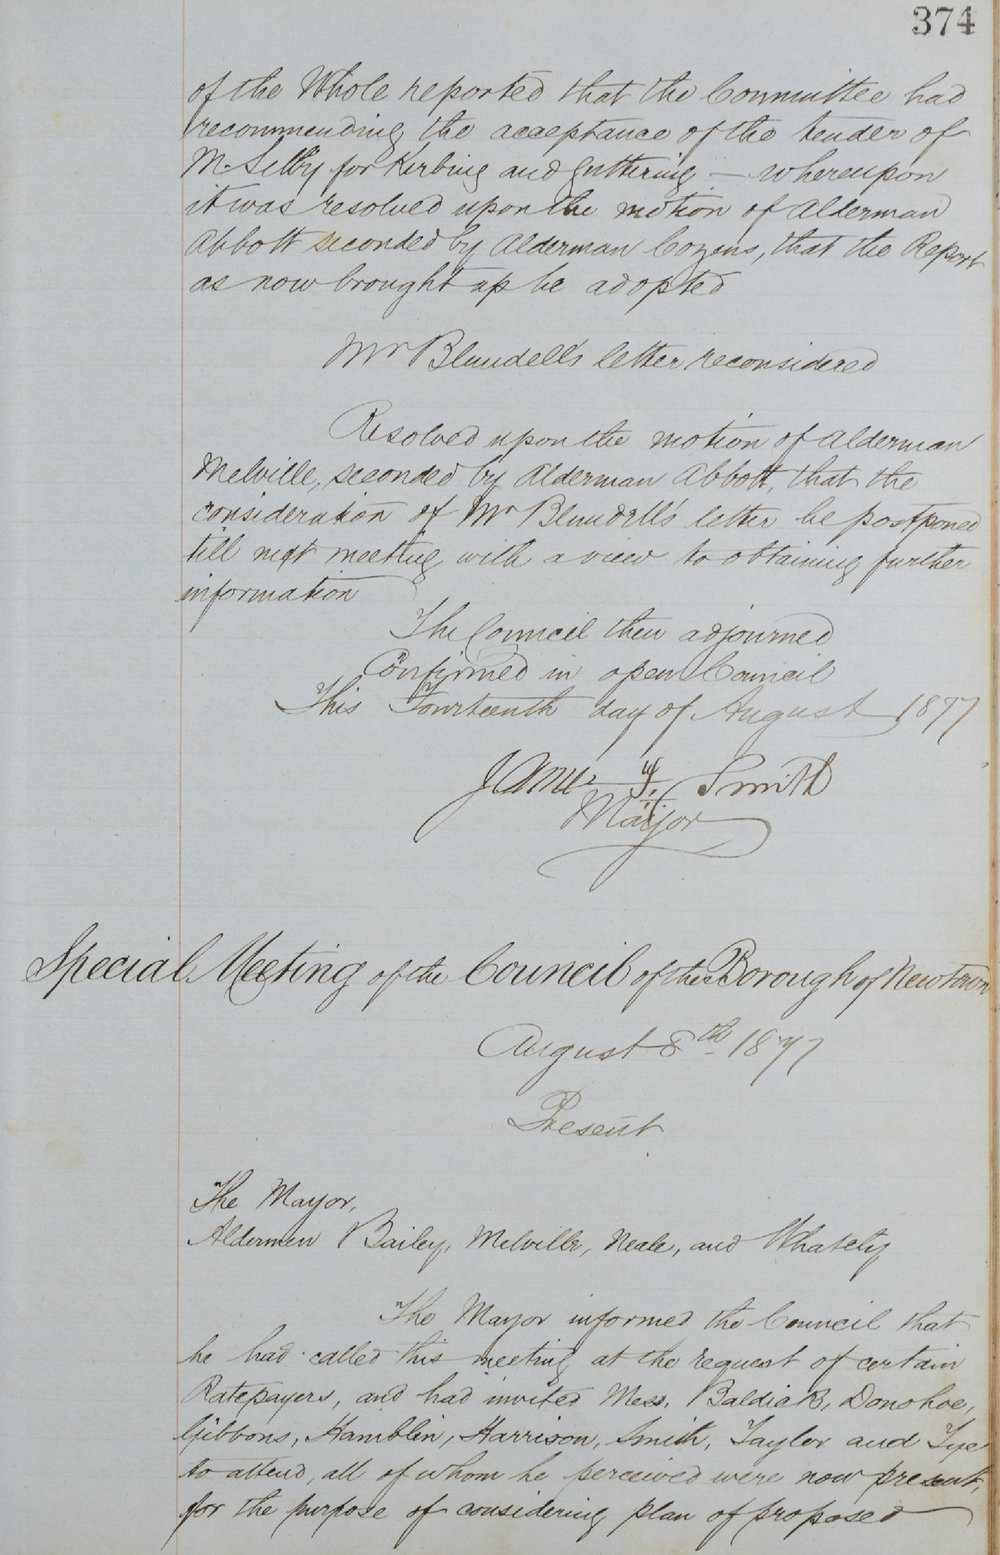 374
of the Whole reported that the Committee had
recommending the acceptance of the tender of
Mr Selby for Kerbing and Guttering — whereupon
it was resolved upon the motion of Alderman
Abbott seconded by Alderman Cozens, that the Report
as now brought up be adopted
Mr Blundell's letter reconsidered
Resolved upon the motion of Alderman
Melville, seconded by Alderman Abbott, that the
consideration of Mr Blundell's letter be postponed
till next meeting with a view to obtaining further
information
The Council then adjourned
Confirmed in open Council
This Fourteenth day of August 1877
James Smith
Mayor
Special Meeting of the Council of the Borough of Newtown
August 8th 1877
Present
The Mayor,
Aldermen Bailey, Melville, Neale, and Whately
The Mayor informed the Council that
he had called this meeting at the request of certain
Ratepayers, and had invited Mess. Baldick, Donohoe,
Gibbons, Hamblin, Harrison, Smith, Taylor and Tye
to attend, all of whom he perceived were now present,
for the purpose of considering plan of proposed